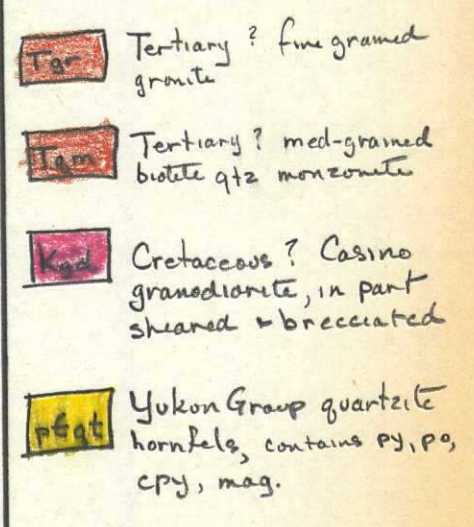 Tgr
Tertiary ? fine grained
granite
Tqm
Tertiary ? med-grained
biotite qtz monzonite
Kgd
Cretaceous ? Casino
granodiorite, in part
sheared & brecciated
pЄqt
Yukon Group quartzite
hornfels, contains py, po,
cpy, mag.